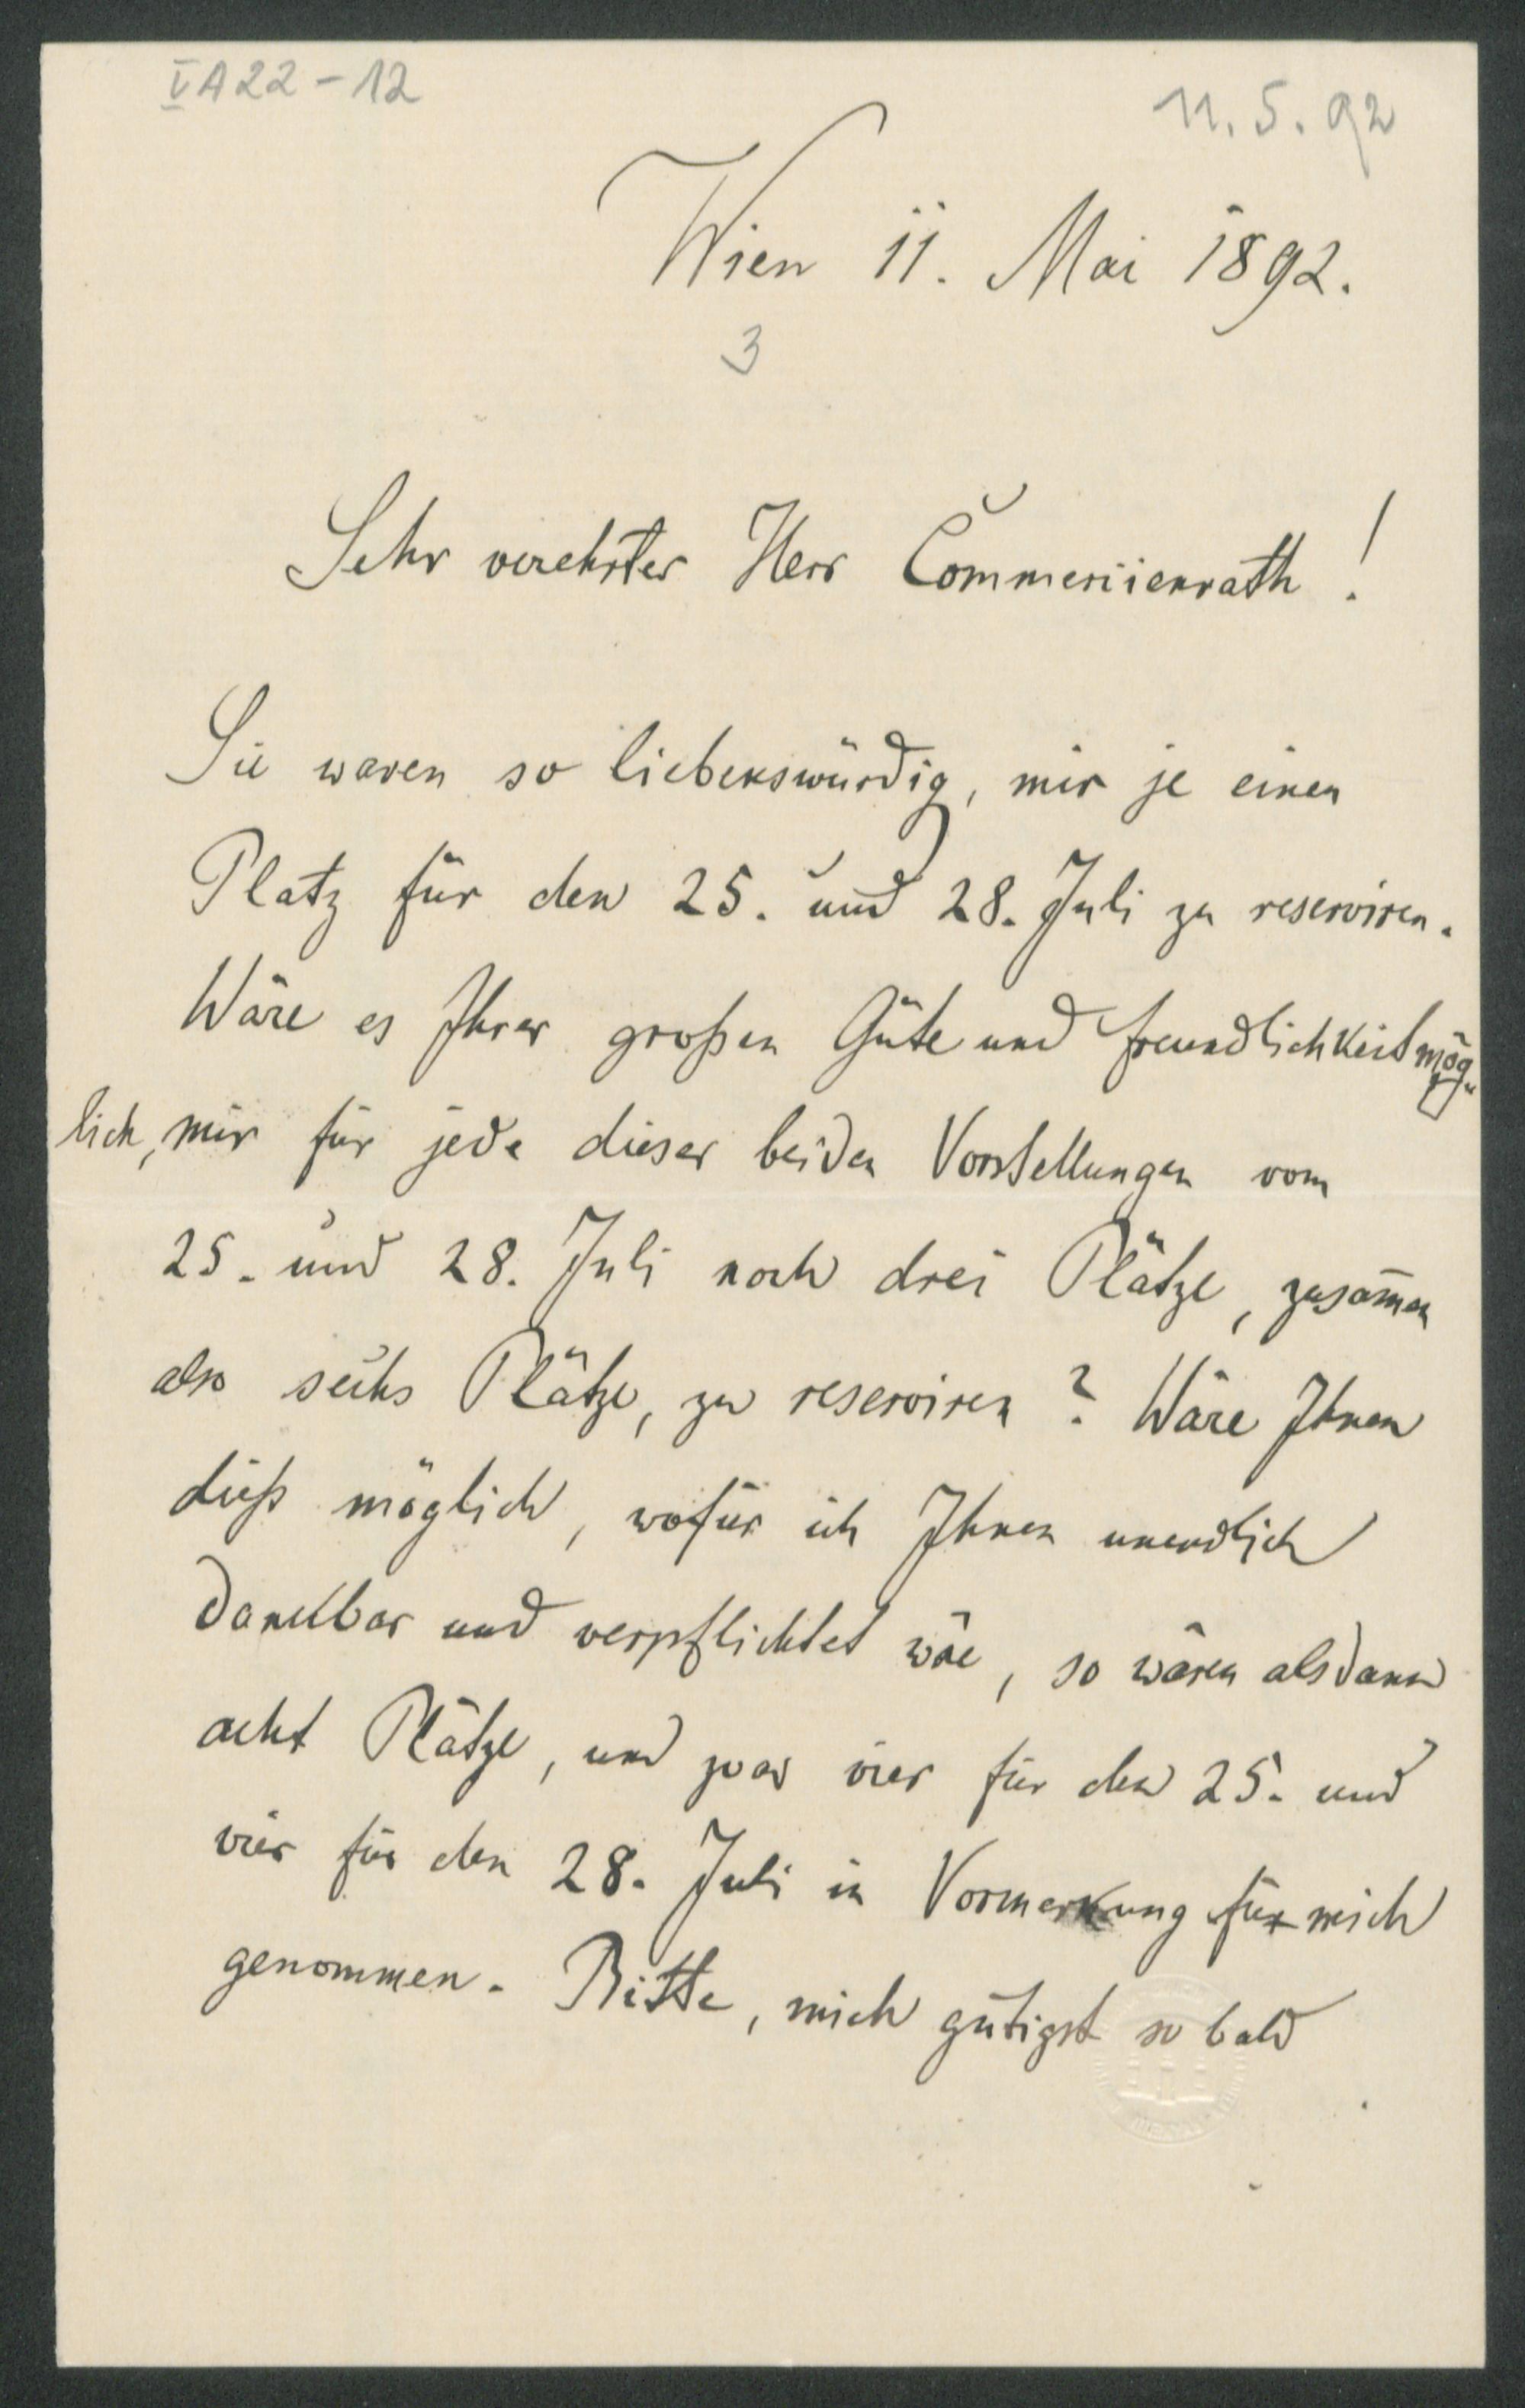 VA22-12
11.5.92
Wien 11. Mai 1892.
3
Sehr verehrter Herr Commerzienrath!
Sie waren so liebenswürdig, mir je einen
Platz für den 25. und 28. Juli zu reserviren.
Wäre es Ihrer großen Güte und Freundlichkeit mög-
lich, mir für jede dieser beiden Vorstellungen vom
25. und 28. Juli noch drei Plätze, zusam̄en
also sechs Plätze, zu reserviren? Wäre Ihnen
dieß möglich, wofür ich Ihnen unendlich
dankbar und verpflichtet wäre, so wären alsdann
acht Plätze, und zwar vier für den 25. und
vier für den 28. Juli in Vormerkung für mich
genommen. Bitte, mich gütigst so bald